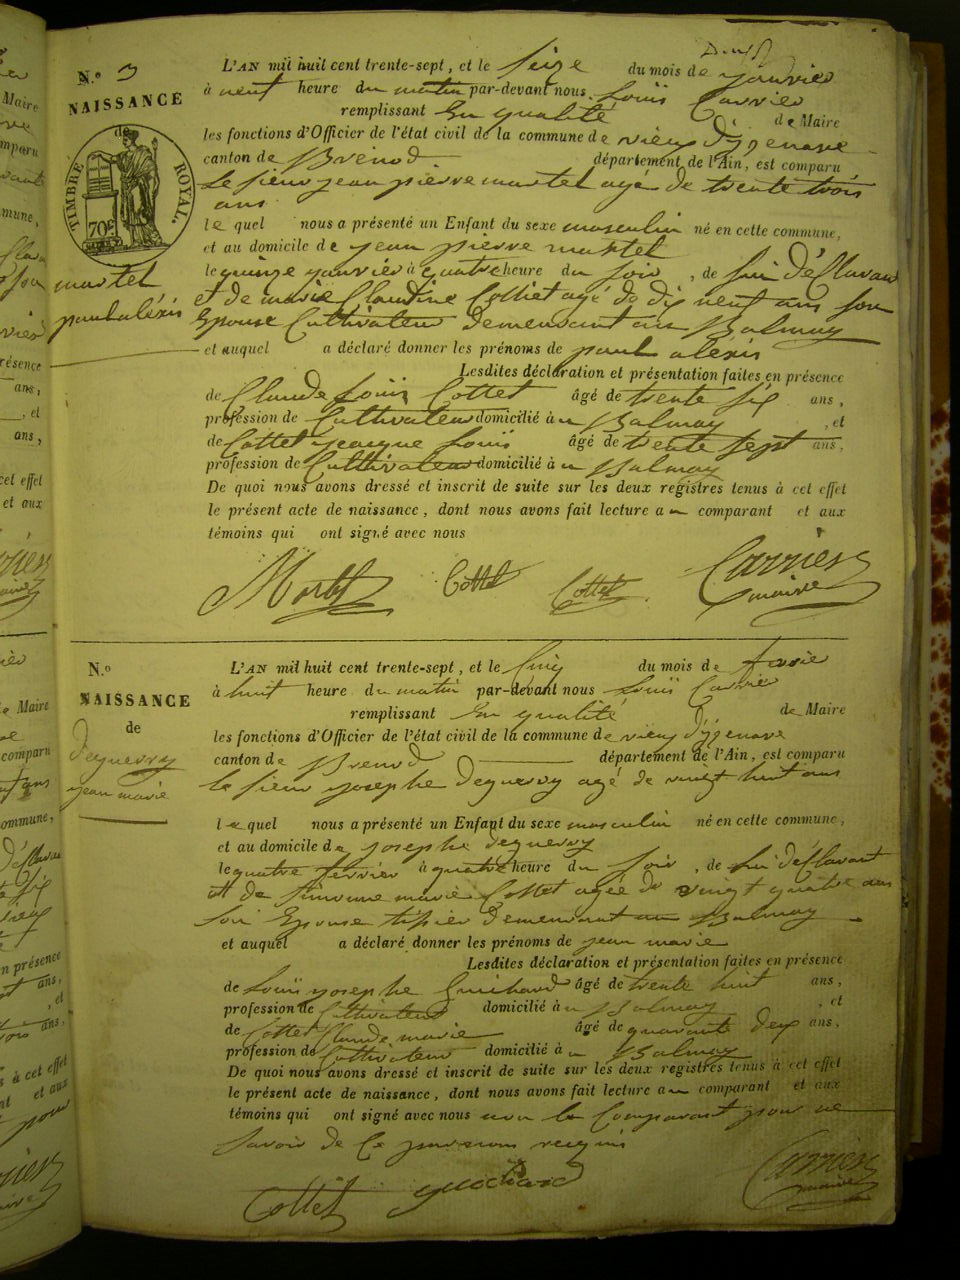 N.º 3
NAISSANCE
de
TIMBRE ROYAL.
70c
martel
paul aléxis
L'AN mil huit cent trente-sept, et le Seize du mois de janvier
à neuf heure du matin par-devant nous Louis Carrier
remplissant En qualité de Maire
les fonctions d'Officier de l'état civil de la commune de vieu d'yzenave
canton de Brénod département de l'Ain, est comparu
le sieur jean pierre martel agé de trente trois
ans
le quel nous a présenté un Enfant du sexe masculin né en cette commune,
et au domicile de jean pierre martel
le quinze janvier à quatre heure du soir, de lui déclarant
et de marie Claudine Collet agé de dix neuf ans son
Epouse Cultivateur demeurant au Balmay
et auquel a déclaré donner les prénoms de paul aléxis
Lesdites déclaration et présentation faites en présence
de Claude Louis Cottet âgé de trente six ans,
profession de Cultivateur domicilié à u Balmay, et
de Cottet jacque Louis âgé de trente sept ans,
profession de Cultivateur domicilié à u Balmay
De quoi nous avons dressé et inscrit de suite sur les deux registres tenus à cet effet
le présent acte de naissance, dont nous avons fait lecture au comparant et aux
témoins qui ont signé avec nous
Martel Cottet Cottet Carrier
maire
N.º
NAISSANCE
de
Deguerry
jean marie
L'AN mil huit cent trente-sept, et le Cinq du mois de fevrie
à huit heure du matin par-devant nous Louis Carrier
remplissant En qualité de Maire
les fonctions d'Officier de l'état civil de la commune de vieu d'yzenave
canton de Brenod département de l'Ain, est comparu
le sieur josephe Deguerry agé de vingt huit ans
le quel nous a présenté un Enfant du sexe masculin né en cette commune,
et au domicile de josephe deguerry
le quatre fevrier à quatre heure du soir, de lui déclarant
et de marie Cottet agée de vingt quatre ans
son Epouse tisier demeurant au Balmay
et auquel a déclaré donner les prénoms de jean marie
Lesdites déclaration et présentation faites en présence
de Louis josephe Guichard âgé de trente huit ans,
profession de Cultivateur domicilié à u Balmay, et
de Cottet Claude marie âgé de quarante deux ans,
profession de Cultivateur domicilié à u Balmay
De quoi nous avons dressé et inscrit de suite sur les deux registres tenus à cet effet
le présent acte de naissance, dont nous avons fait lecture au comparant et aux
témoins qui ont signé avec nous non le Comparant pour ne
savoir de Ce requis
Cottet guichard Carrier
maire